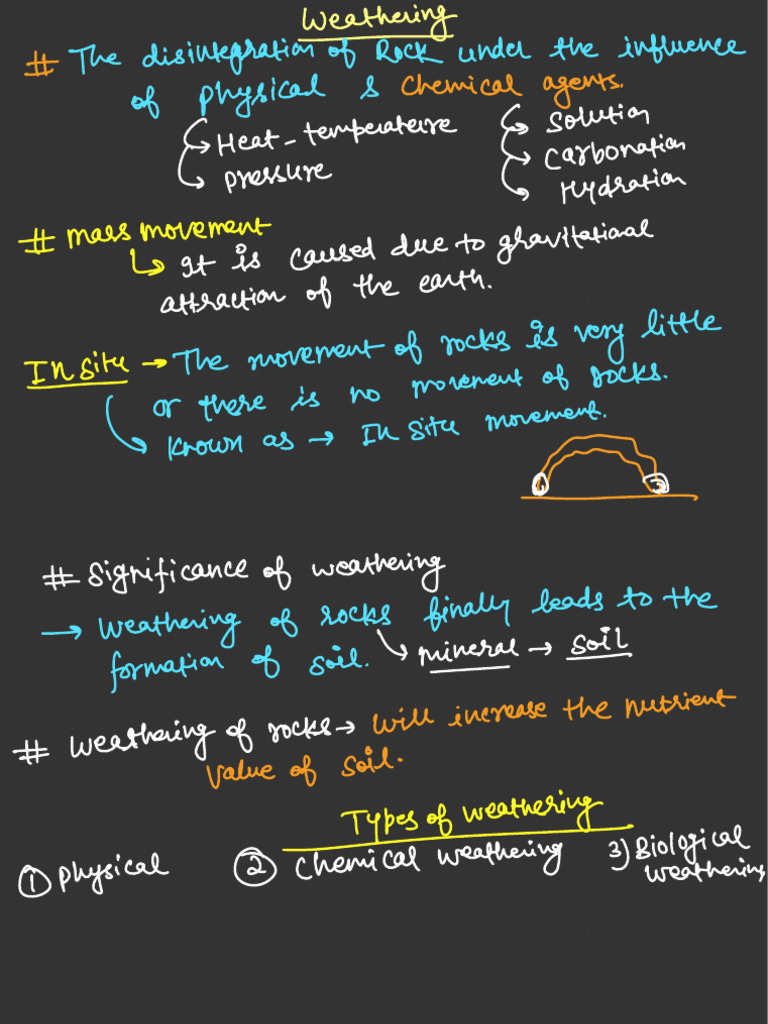 Weathering
# The disintegration of Rock under the influence
of physical & chemical agents.
Heat - temperature
pressure
Solution
Carbonation
Hydration
# mass movement
It is caused due to gravitational
attraction of the earth.
In situ → The movement of rocks is very little
or there is no movement of rocks.
known as → In situ movement.
# Significance of weathering
→ Weathering of rocks finally leads to the
formation of soil. mineral → soil
# Weathering of rocks → will increase the nutrient
value of soil.
Types of weathering
① physical ② chemical weathering 3) Biological
weathering